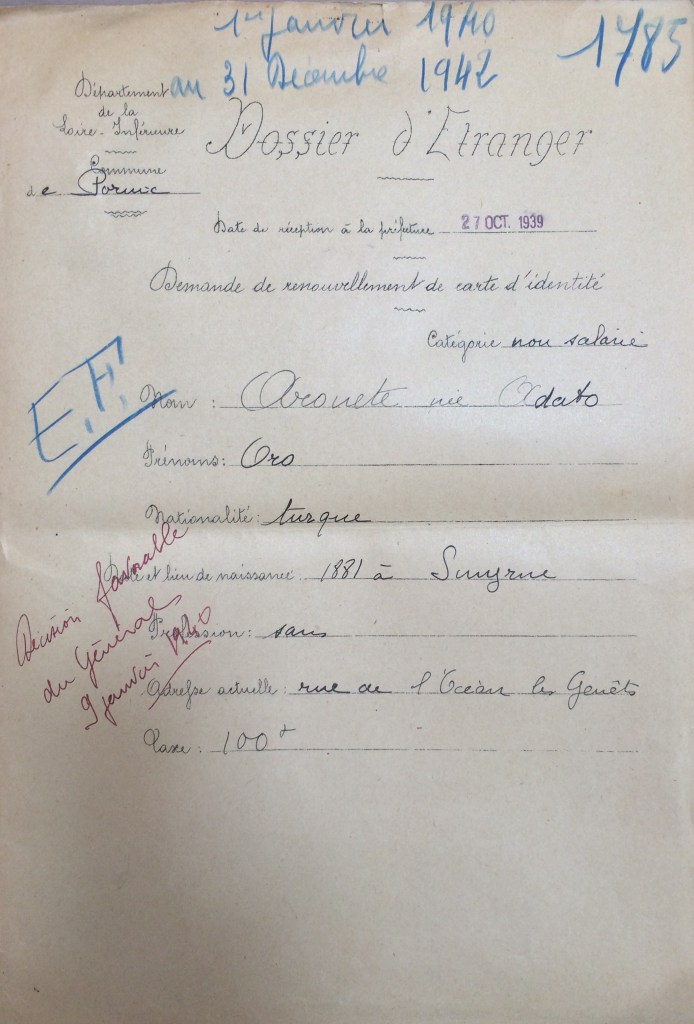 1er janvier 1940
au 31 Décembre 1942
1785
Département
de la
Loire-Inférieure
Commune
de Pornic
Dossier d'Etranger
Date de réception à la préfecture 27 OCT. 1939
Demande de renouvellement de carte d'identité
Catégorie non salarié
E.F.
Nom : Arouete née Adato
Prénoms: Oro
Nationalité: turque
Date et lieu de naissance 1881 à Smyrne
Profession: sans
Adresse actuelle: rue de l'Océan les Genêts
Taxe: 100 f
Décision favorable
du Général
9 janvier 1940